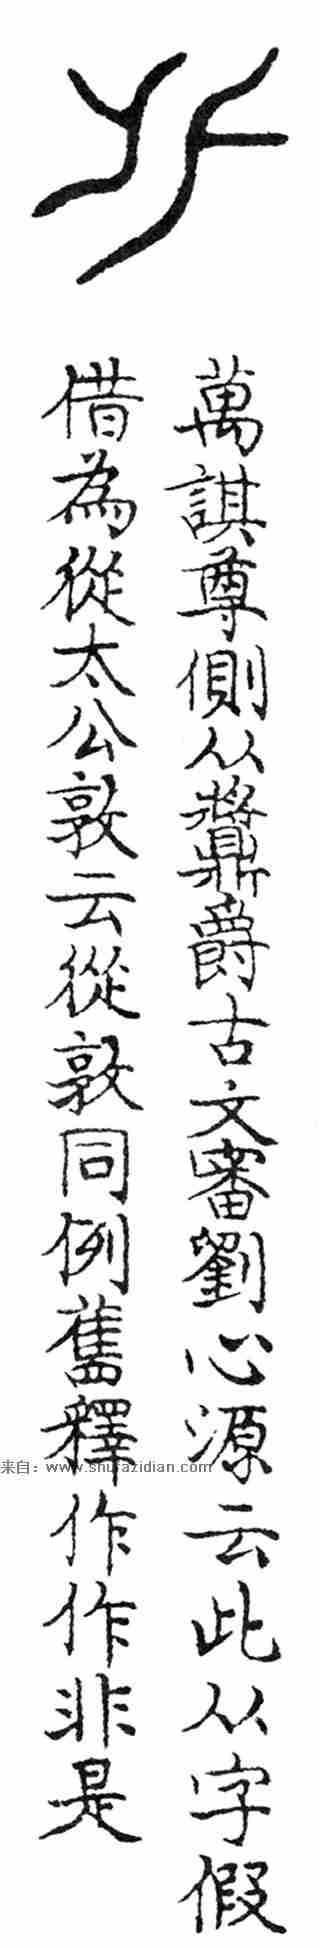 萬諆尊側从䵼爵古文審劉心源云此从字假
借為從太公敦云從敦同例舊釋作作非是
来自：www.shufazidian.com